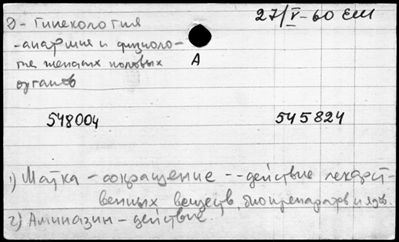 Э - Гинекология 27/V-60 ЕМ
- анатомия и физиоло-
гия женских половых А
органов
548004 545824
1) Матка - сокращение -- действие лекарст-
венных веществ, биопрепаратов и ядов.
2) Аминазин - действие.